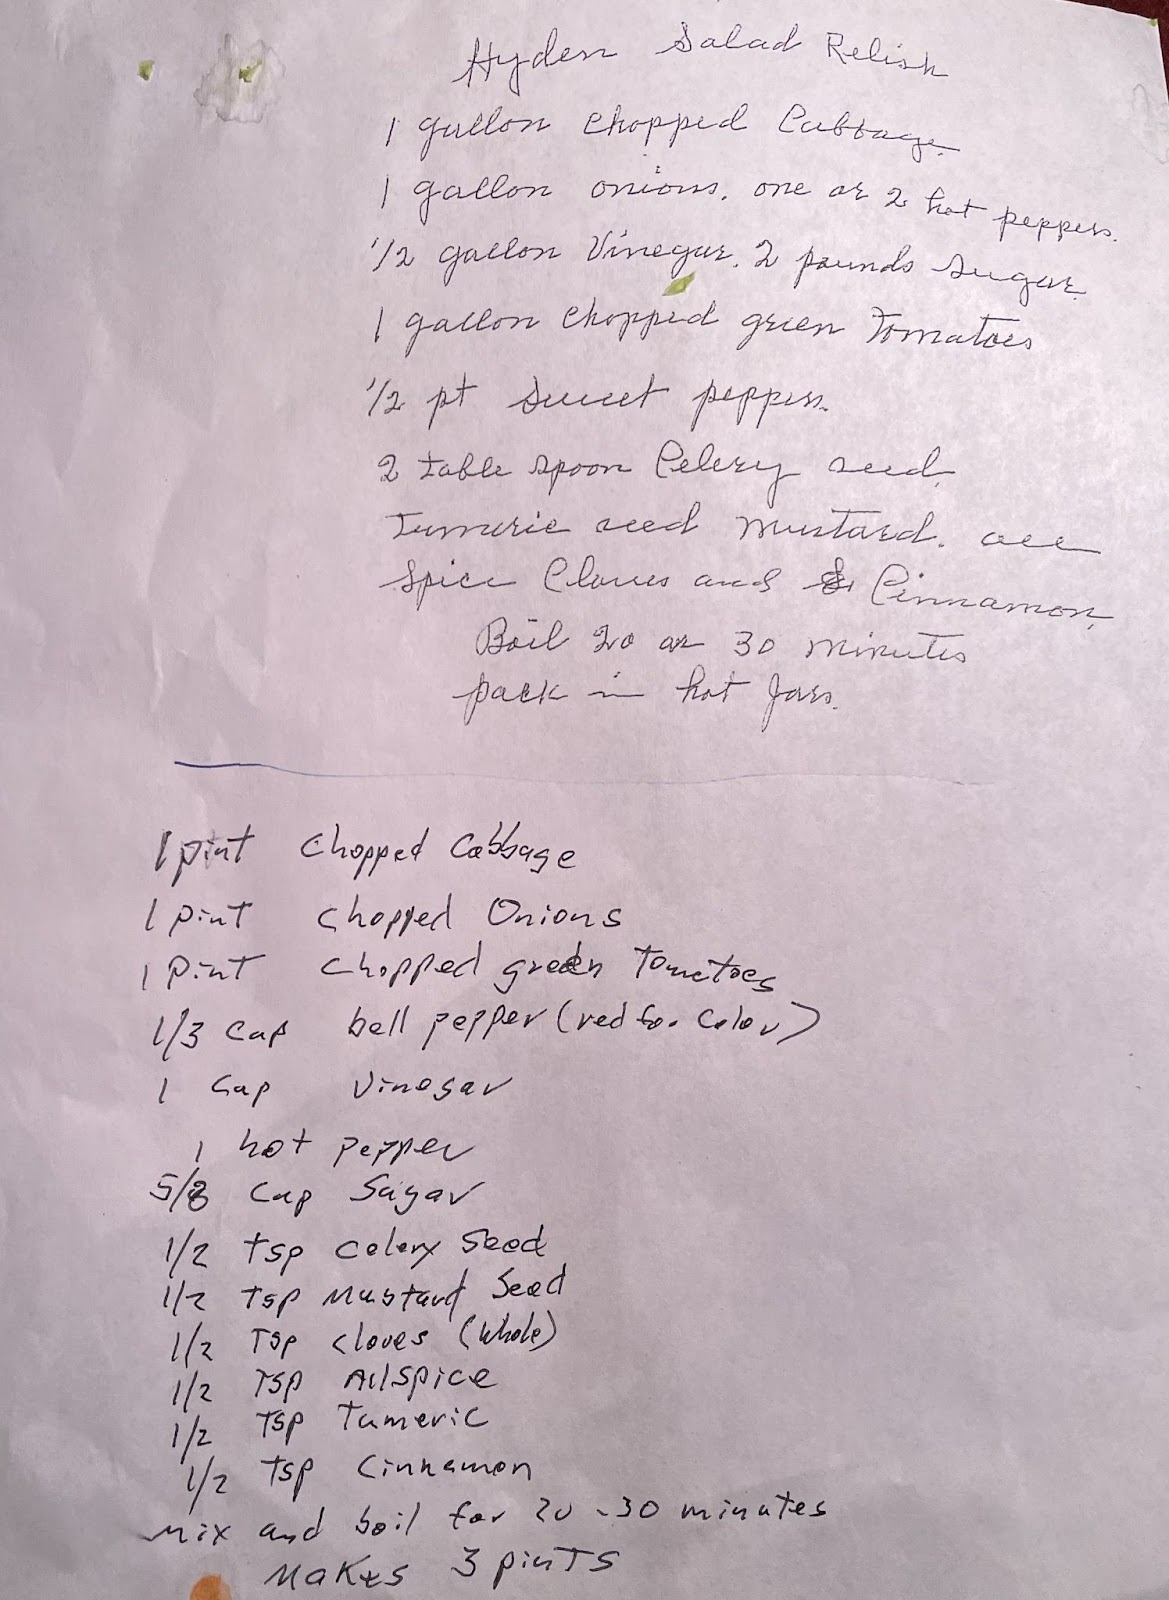 Hyden Salad Relish
1 gallon chopped Cabbage.
1 gallon onions. one or 2 hot peppers.
1/2 gallon Vinegar. 2 pounds sugar.
1 gallon chopped green Tomatoes
1/2 pt sweet peppers.
2 table spoon Celery seed.
Tumeric seed mustard. all
spice Cloves and Cinnamon.
Boil 20 or 30 minutes
pack in hot Jars.
1 pint chopped cabbage
1 pint chopped Onions
1 pint chopped green Tometoes
1/3 cup bell pepper (red for color)
1 cup vinegar
1 hot pepper
5/8 cup Sugar
1/2 tsp celery seed
1/2 tsp Mustard Seed
1/2 Tsp cloves (whole)
1/2 Tsp Allspice
1/2 Tsp Tumeric
1/2 Tsp Cinnamon
Mix and boil for 20 - 30 minutes
Makes 3 pints